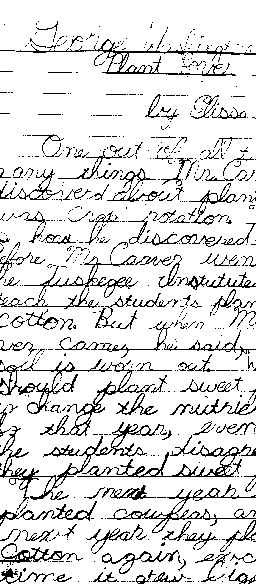 George Washing
Plant Lover
by Elissa
One out of all
any things Mr. Car
discoverd about plan
was crop rotation.
how he discovered
efore Mr. Carver wen
he tuskegee Institute
teach the students plan
cotton. But when M
ver came, he said,
soil is worn out. W
should plant sweet
change the nutrie
that year, even
he students disagre
they planted sweet
The next year
planted cowpeas, an
next year they pl
Cotton again, exc
time it grew